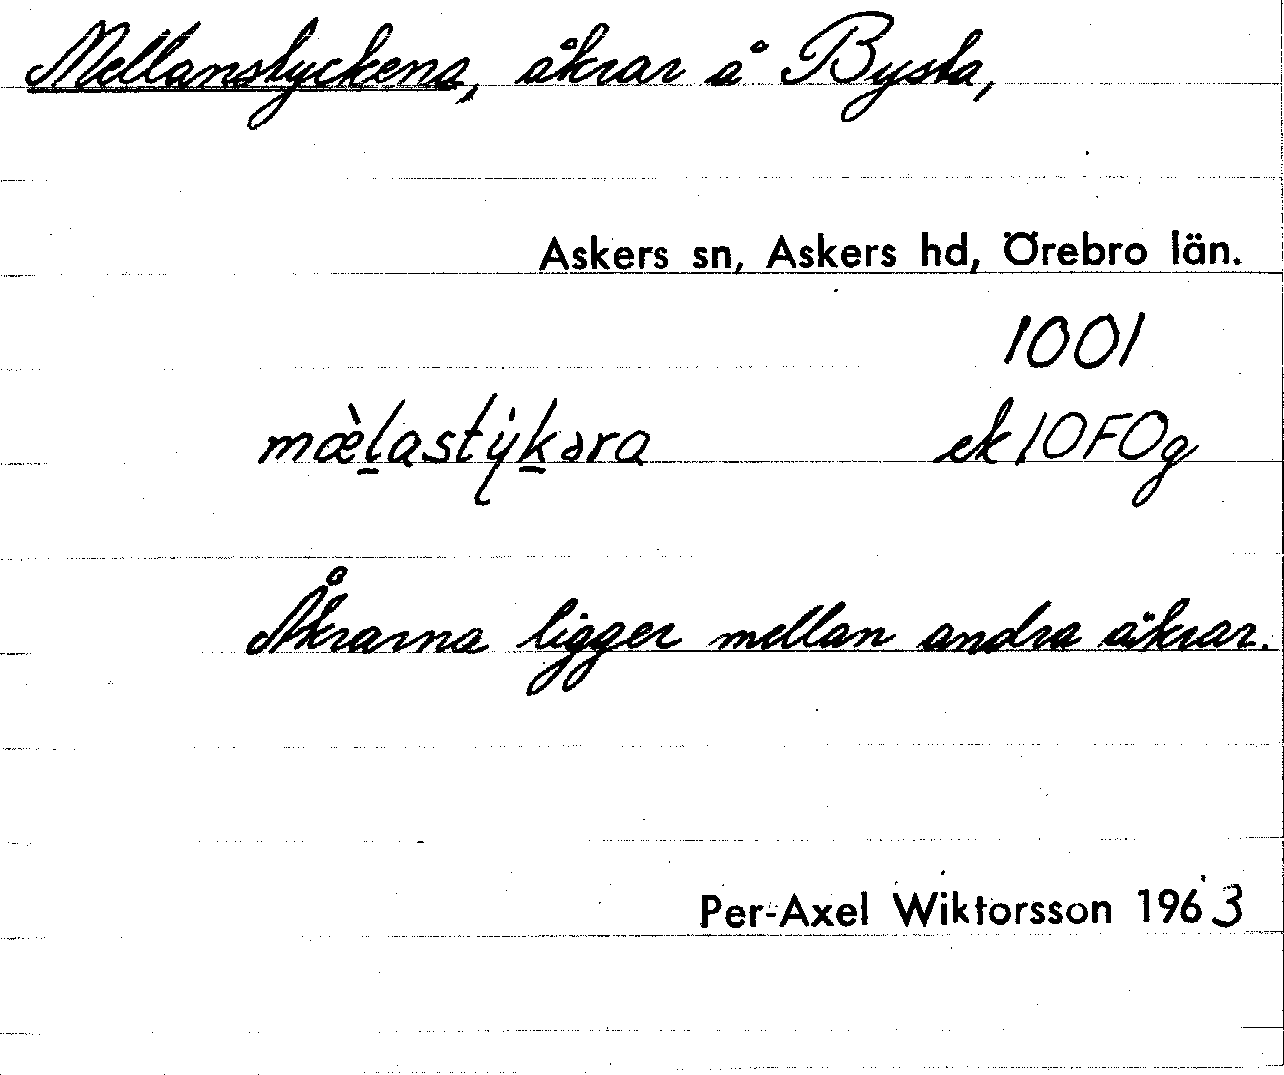 Mellanstyckena, åkrar å Bysta,
Askers sn, Askers hd, Örebro län.
1001
mæ̀l̲astẏk̲əra ek 10FOg
Åkrarna ligger mellan andra åkrar.
Per-Axel Wiktorsson 1963